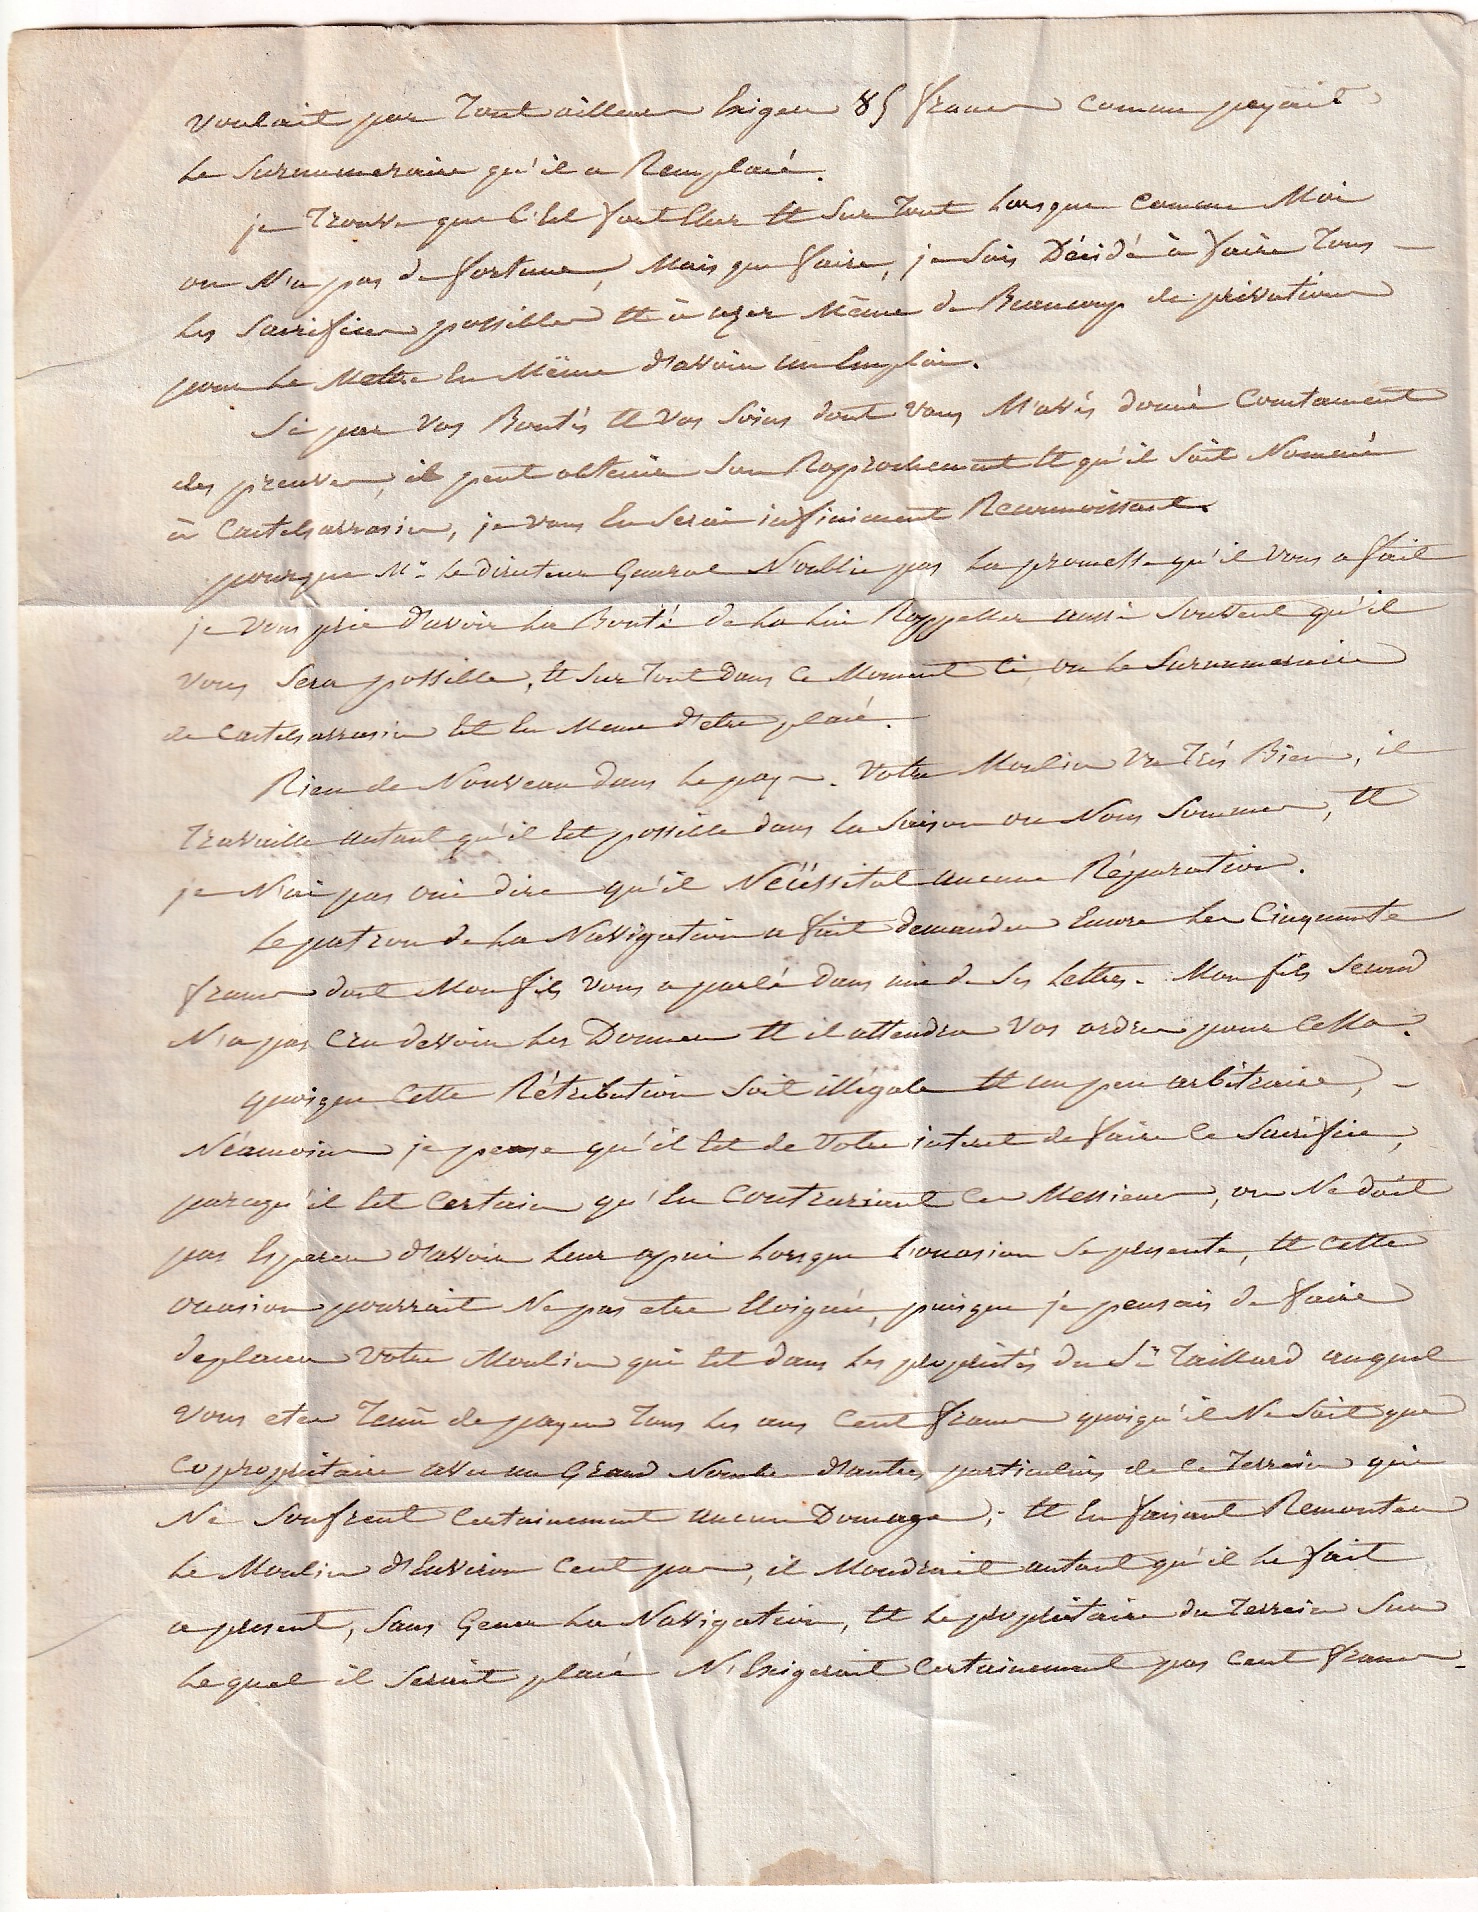 voulait par tout ailleur Exiger 85 francs comme payait
le surnumeraire qu'il a Remplacé.
je trouve que C'Est fort Cher Et sur tout lorsque comme Moi
on N'a pas de fortune, Mais que faire, je suis Décidé à faire tous
les sacrifices possibles Et à uzer Même de Beaucoup de privations
pour le Mettre En Même d'avoir un Emploi.
Si par vos Bontés Et vos soins dont vous M'avés donné Constament
des preuves, il peut obtenir son Raprochement Et qu'il soit Nommé
à Castelsarrasin, je vous En serai infiniment Reconnoissant.
pourque Mr. le directeur General N'oublie pas la promesse qu'il vous a fait
je vous prie d'avoir la Bonté de la lui Rappeller aussi souvent qu'il
vous sera possible, Et sur tout dans ce Moment ci, ou le surnumeraire
de Castelsarrasin Est En Meme d'etre placé.
Rien de Nouveau dans le pays. Votre Moulin va très Bien, il
travaille autant qu'il Est possible dans la saison ou Nous sommes, Et
je N'ai pas oui dire qu'il Nécéssitat aucune Réparation.
le patron de la Navigation a fait demander Encore les Cinquante
francs dont Mon fils vous a parlé dans une de ses lettres. Mon fils second
N'a pas cru devoir les Donner Et il attendra vos ordres pour Cella.
quoique cette Rétribution soit illégale Et un peu arbitraire,
Néamoins je pense qu'il Est de votre interet de faire ce sacrifice,
parcequ'il Est certain qu'En Contrariant ces Messieurs, on Ne doit
pas Esperer d'avoir leur apui lorsque l'ocasion se presente, Et cette
ocasion pourrait Ne pas etre Eloignée, puisque je pensais de faire
deplacer votre Moulin qui Est dans les propriétés du Sr. Taillard auquel
vous etes tenu de payer tous les ans Cent francs quoiqu'il Ne soit que
coproprietaire avec un Grand Nombre d'autres particuliers de ce terrein qui
Ne soufrent certainement aucun Domage; Et En faisant Remonter
le Moulin d'Environ Cent pas, il Moudrait autant qu'il le fait
a present, sans Gener la Navigation, Et le proprietaire du terrein sur
lequel il serait placé N'Exigerait certainement pas Cent francs